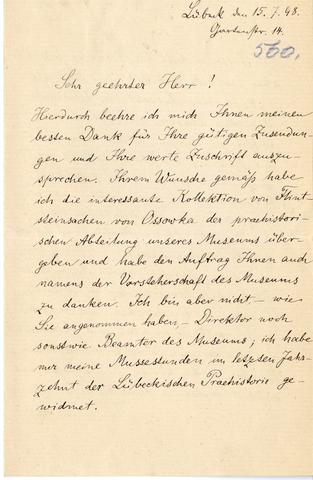 Lübeck den 15. 7. 98.
Gartenstr. 14.
560.
Sehr geehrter Herr !
Hierdurch beehre ich mich Ihnen meinen
besten Dank für Ihre gütigen Zusendun-
gen und Ihre werte Zuschrift auszu-
sprechen. Ihrem Wunsche gemäß habe
ich die interessante Kollektion von Flint-
steinsachen von Ossowka der praehistori-
schen Abteilung unseres Museums über-
geben und habe den Auftrag Ihnen auch
namens der Vorsteherschaft des Museums
zu danken. Ich bin aber nicht – wie
Sie angenommen haben, – Direktor noch
sonstwie Beamter des Museums; ich habe
nur meine Mussestunden im letzten Jahr-
zehnt der Lübeckischen Praehistorie ge-
widmet.